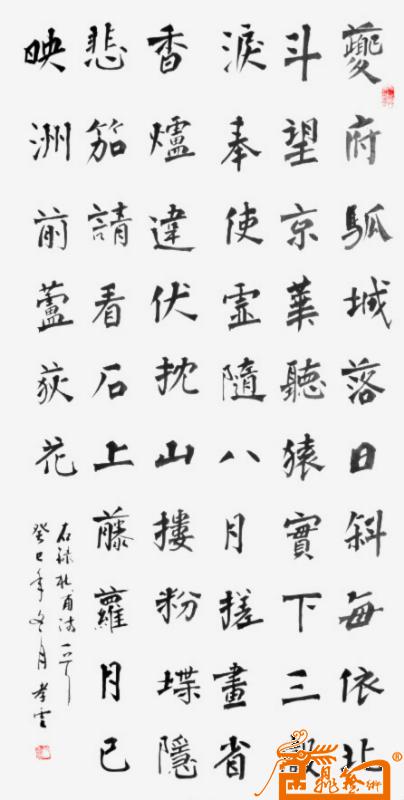 夔府孤城落日斜每依北
斗望京華聽猿實下三聲
淚奉使虛隨八月搓畫省
香爐違伏枕山摟粉堞隱
悲笳請看石上藤蘿月已
映洲前蘆荻花
右錄杜甫詩一首
癸巳年冬月孝雲